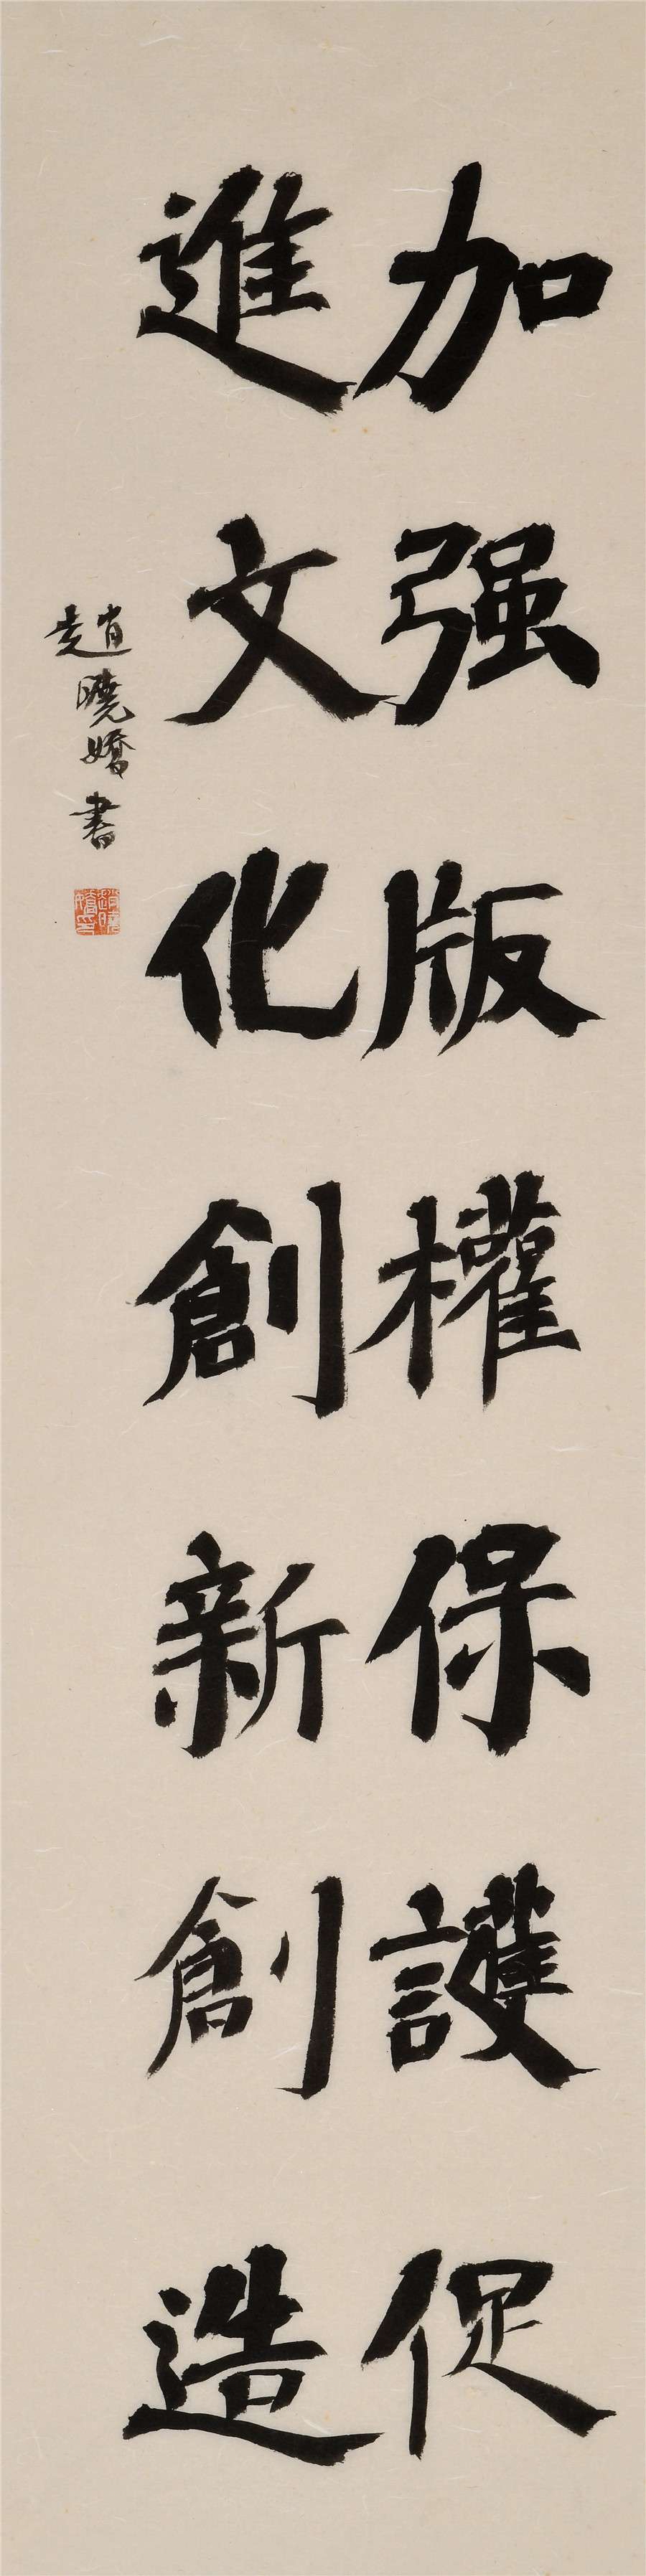 加强版權保護促
進文化創新創造
趙曉嬌書